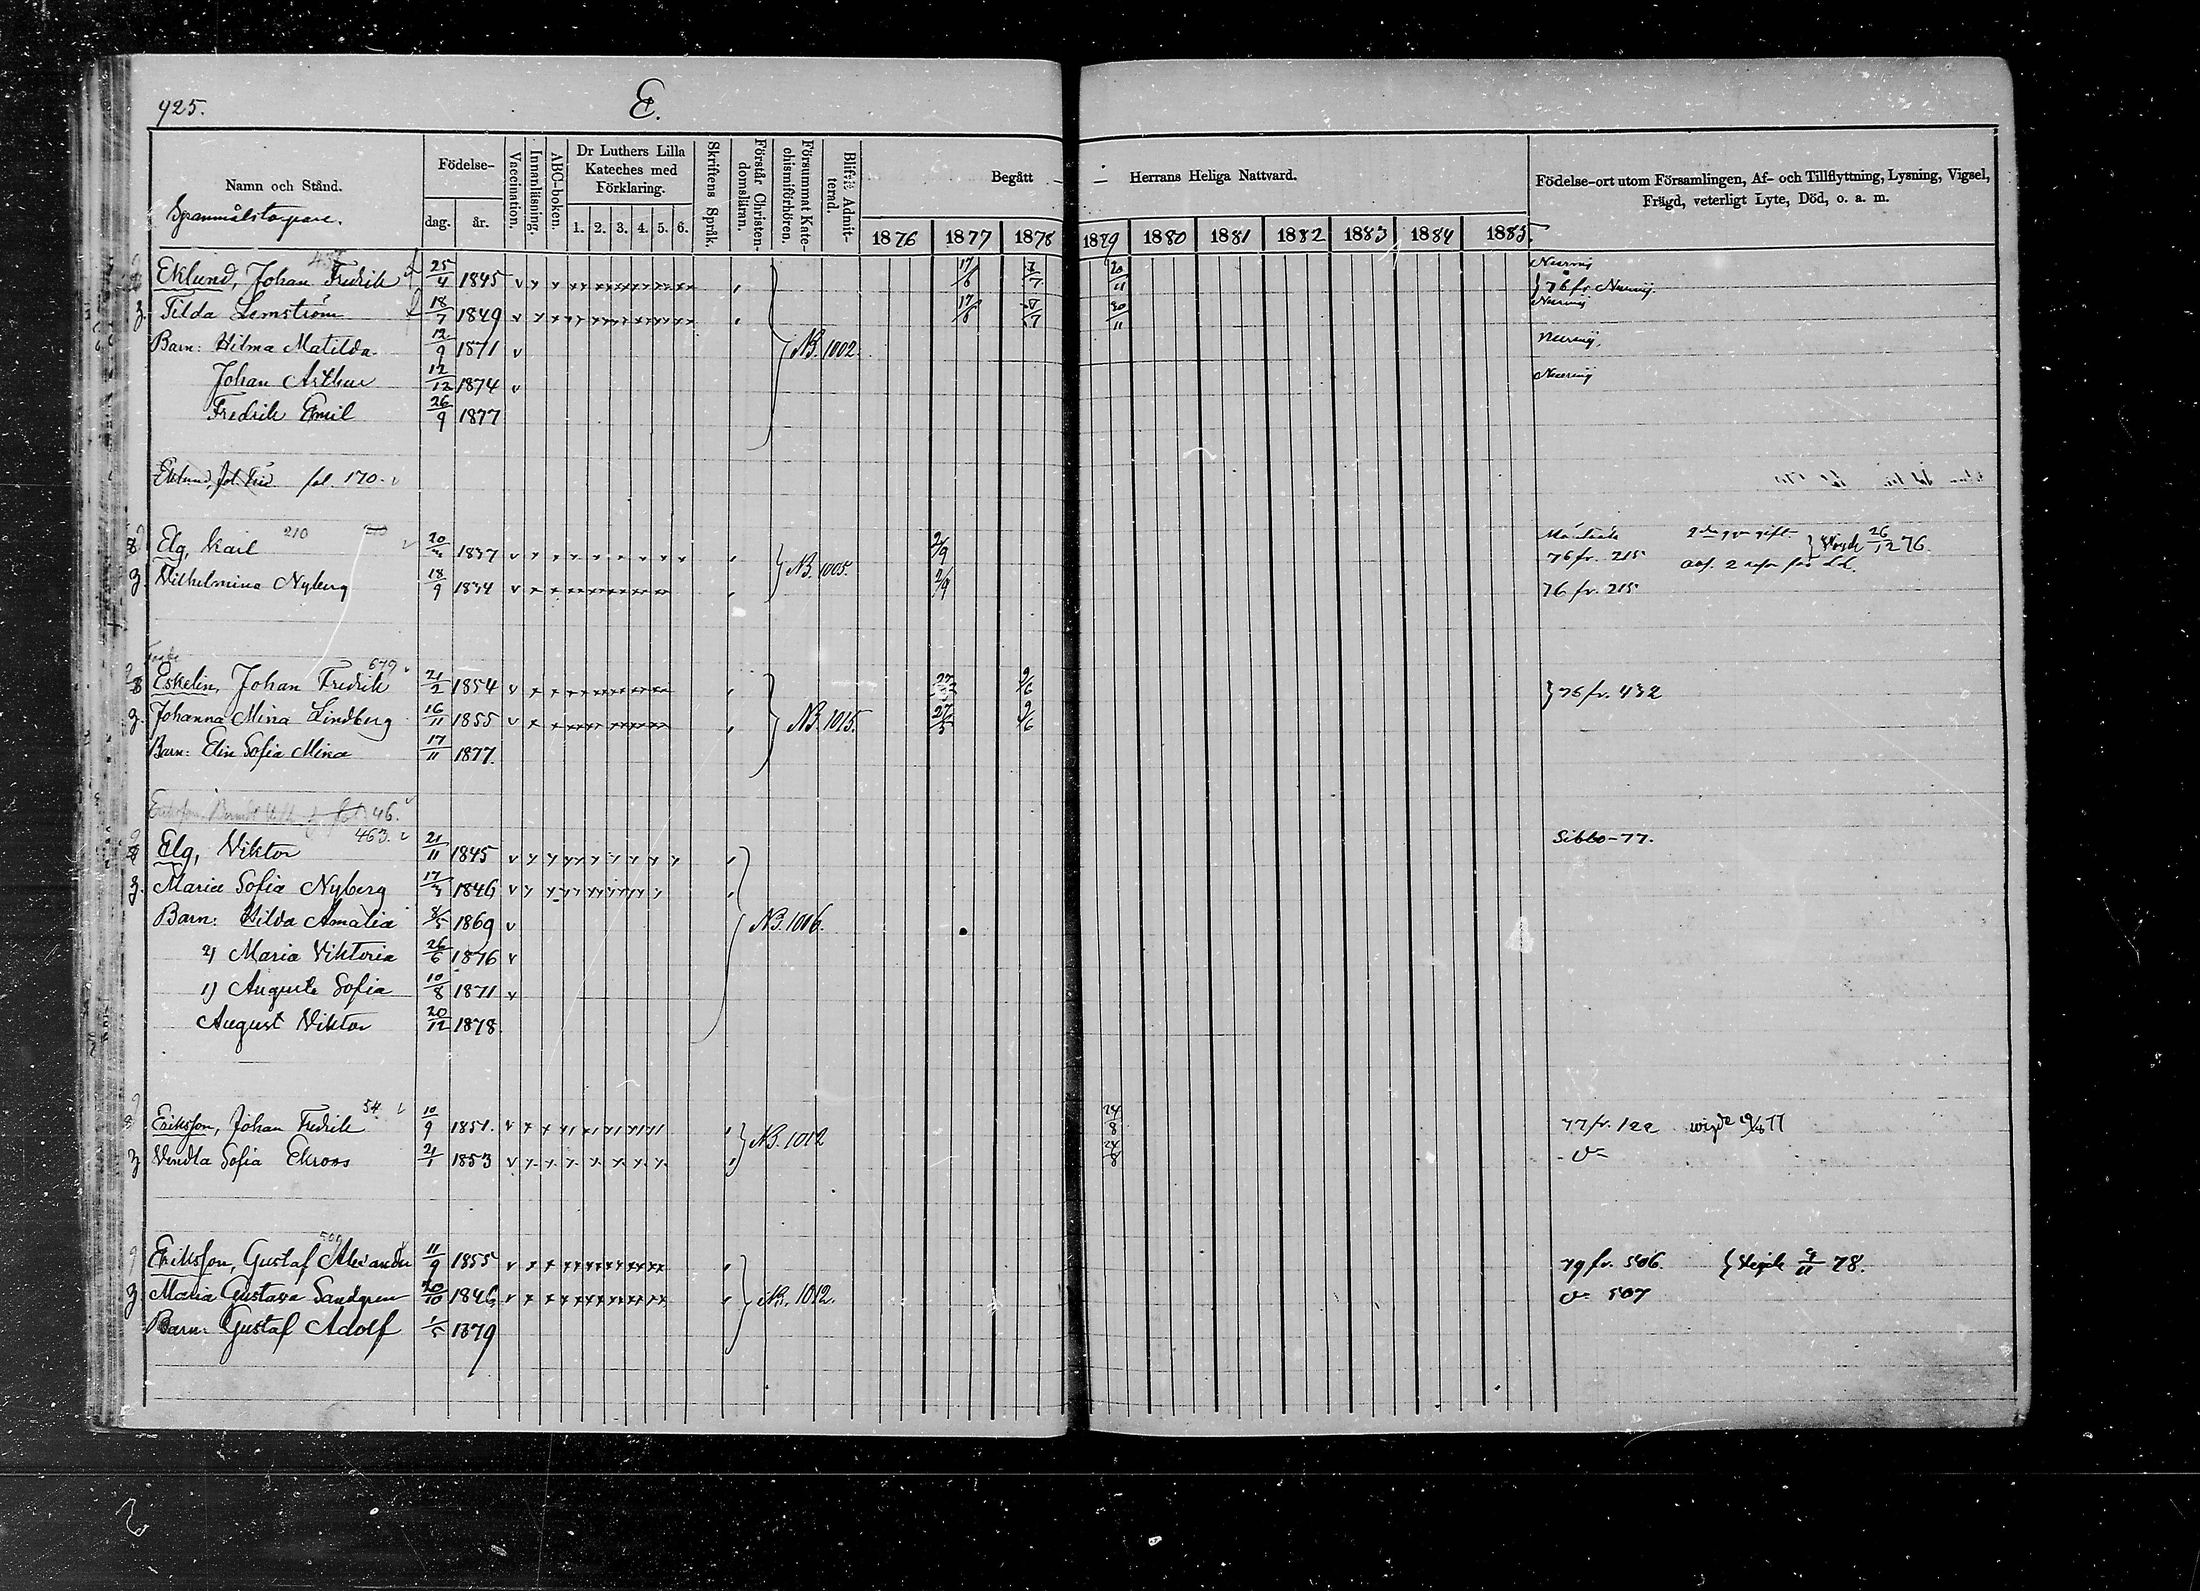 925.
E.
Namn och Stånd.
Födelse-
dag.
år.
Vaccination.
Innanläsning.
ABC-boken.
Dr Luthers Lilla
Kateches med
Förklaring.
1. 2. 3. 4. 5. 6.
Skriftens Språk.
Förstår Christen-
domsläran.
Försummat Kate-
chismiförhören.
Blifvit Admit-
terad.
Begått Herrans Heliga Nattvard.
1876 1877 1878 1879 1880 1881 1882 1883 1884 1885
Födelse-ort utom Församlingen, Af- och Tillflyttning, Lysning, Vigsel,
Frägd, veterligt Lyte, Död, o. a. m.
Eklund, Johan Fredrik 25/4 1845 17/6 20/11
76 fr
Tilda Lemström 18/7 1849 17/6 20/11
Barn: Hilma Matilda 12/9 1871 v NB. 1002.
Johan Arthur 12/12 1874 v
Fredrik Emil 26/9 1877
Eklund, fol. 170.
Elg, Karl 210 1837 2/9 NB. 1005. 76 fr. 215 gift 26/12 76
Wilhelmina Nyberg 18/9 1834 2/9 76 fr. 215
679
Eskelin, Johan Fredrik 21/2 1854 9/6 76 fr. 432
Johanna Mina Lindberg 16/11 1855 27/5 9/6 NB. 1015.
Barn: Elin Sofia Mina 17/11 1877.
46.
463.
Elg, Viktor 21/11 1845 Sibbo-77.
Maria Sofia Nyberg 17/3 1846
Barn: Hilda Amalia 8/5 1869 v NB. 1006.
2) Maria Viktoria 26/6 1876 v
1) Augusta Sofia 10/8 1871 v
August Viktor 20/12 1878
Eriksson, Johan Fredrik 54 10/9 1851. NB. 1012 24/8 77 fr. 122
Vendla Sofia Ekroos 21/1 1853 24/8
Eriksson, Gustaf Alexander 11/9 1855 79 fr. 506. Vigde 9/11 78.
Maria Gustava Sandgren 20/10 1846 NB. 1012. 507
Barn: Gustaf Adolf 1/5 1879